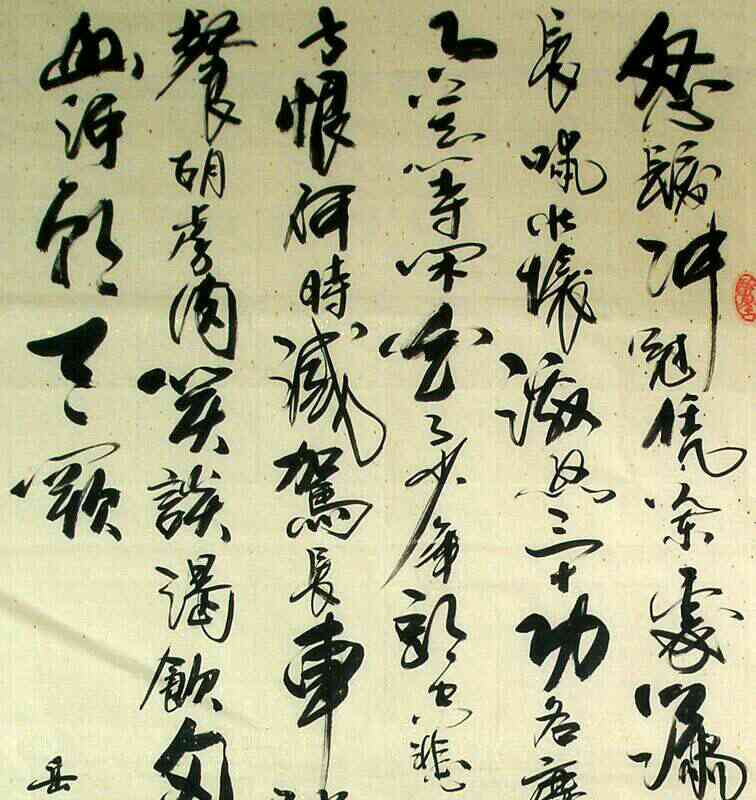 怒髮冲冠凭阑處瀟
長嘯壯懷激烈三十功名塵
月莫等闲白了少年頭空悲
子恨何時滅駕長車
餐胡虜肉笑談渴飲匈
山河朝天闕
岳